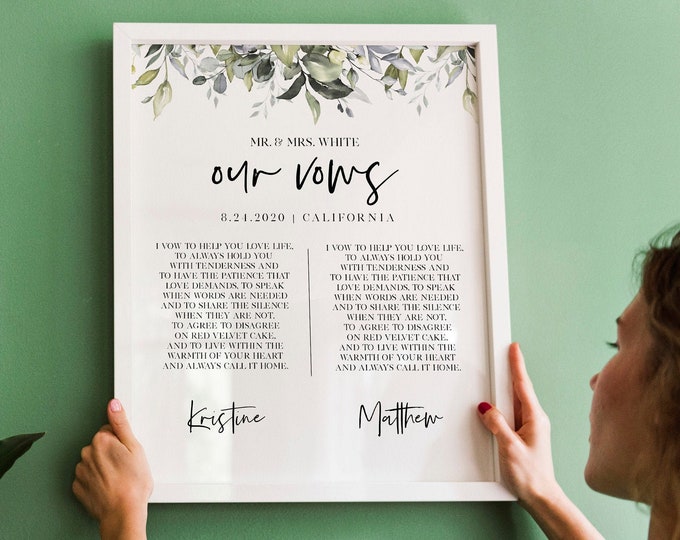 MR. & MRS. WHITE
our vows
8.24.2020 | CALIFORNIA
I VOW TO HELP YOU LOVE LIFE,
TO ALWAYS HOLD YOU
WITH TENDERNESS AND
TO HAVE THE PATIENCE THAT
LOVE DEMANDS, TO SPEAK
WHEN WORDS ARE NEEDED
AND TO SHARE THE SILENCE
WHEN THEY ARE NOT,
TO AGREE TO DISAGREE
ON RED VELVET CAKE,
AND TO LIVE WITHIN THE
WARMTH OF YOUR HEART
AND ALWAYS CALL IT HOME.
Kristine
I VOW TO HELP YOU LOVE LIFE,
TO ALWAYS HOLD YOU
WITH TENDERNESS AND
TO HAVE THE PATIENCE THAT
LOVE DEMANDS, TO SPEAK
WHEN WORDS ARE NEEDED
AND TO SHARE THE SILENCE
WHEN THEY ARE NOT,
TO AGREE TO DISAGREE
ON RED VELVET CAKE,
AND TO LIVE WITHIN THE
WARMTH OF YOUR HEART
AND ALWAYS CALL IT HOME.
Matthew